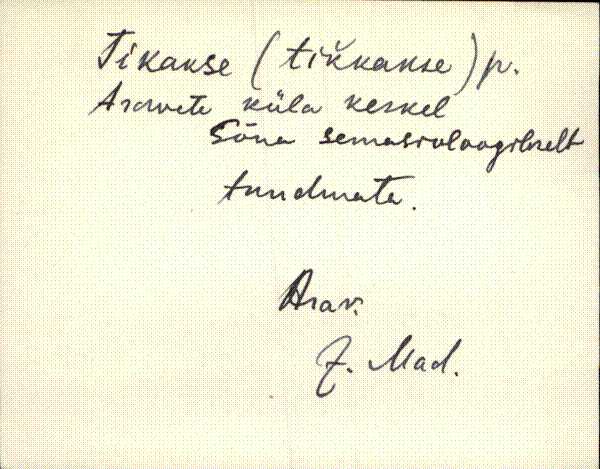 Tikakse (tikkakse) p.
Aravete küla keskel
Sõna semasioloogiliselt
tundmata.
Arav.
J. Mad.